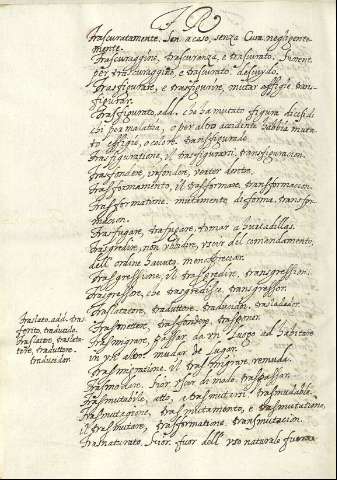 TR
Trascuratamente. Sen acaso, senza Cura. negligente-
mente.
Trascuraggine, trascuranza, e trascurato.
per trascuraggine, e trascurato. descuydo.
Trasfigurare, e trasfigurire, mutar effigie. tran-
figurar.
Trasfigurato, add. che ha mutato figura dicesi di
chi per malatia, o per altro accidente habbia muta-
to effigie, o colore. transfigurado.
Trasfiguratione, il trasfigurarsi. trasfiguracion.
Trasfondere, infonder, verter dentro.
Trasformamento, il trasformare, transformacion.
Trasformatione. mutamento di forma. transfor-
macion.
Trasfugare, trafugare, tomar a hurtadillas.
Trasgredire, non ubidire, uscir del comandamento,
dell' ordine havuto.
Trasgressione, il trasgredir. transgression.
Trasgressor, che trasgredisce. transgressor.
Traslatatore, traduttore. traducidor, trasladador.
Trasmettere, trasfondere, trasponer.
Trasmigrare, passar da un luogo ad habitare
in un altro mudar de lugar.
Trasmigrazione, il trasmigrare, remuda.
Trasmodare, uscir di modo. traspassar.
Trasmutabile, atto, a trasmutarsi. trasmudable.
Trasmutagione, trasmutamento, e trasmutatione,
il trasmutare, trasformatione. transmutacion.
Trasnaturato. fuor dell' uso naturale
Traslato. add. tras-
ferito, traducido.
Traslatare, traslata-
tore, traduttore.
traducidor